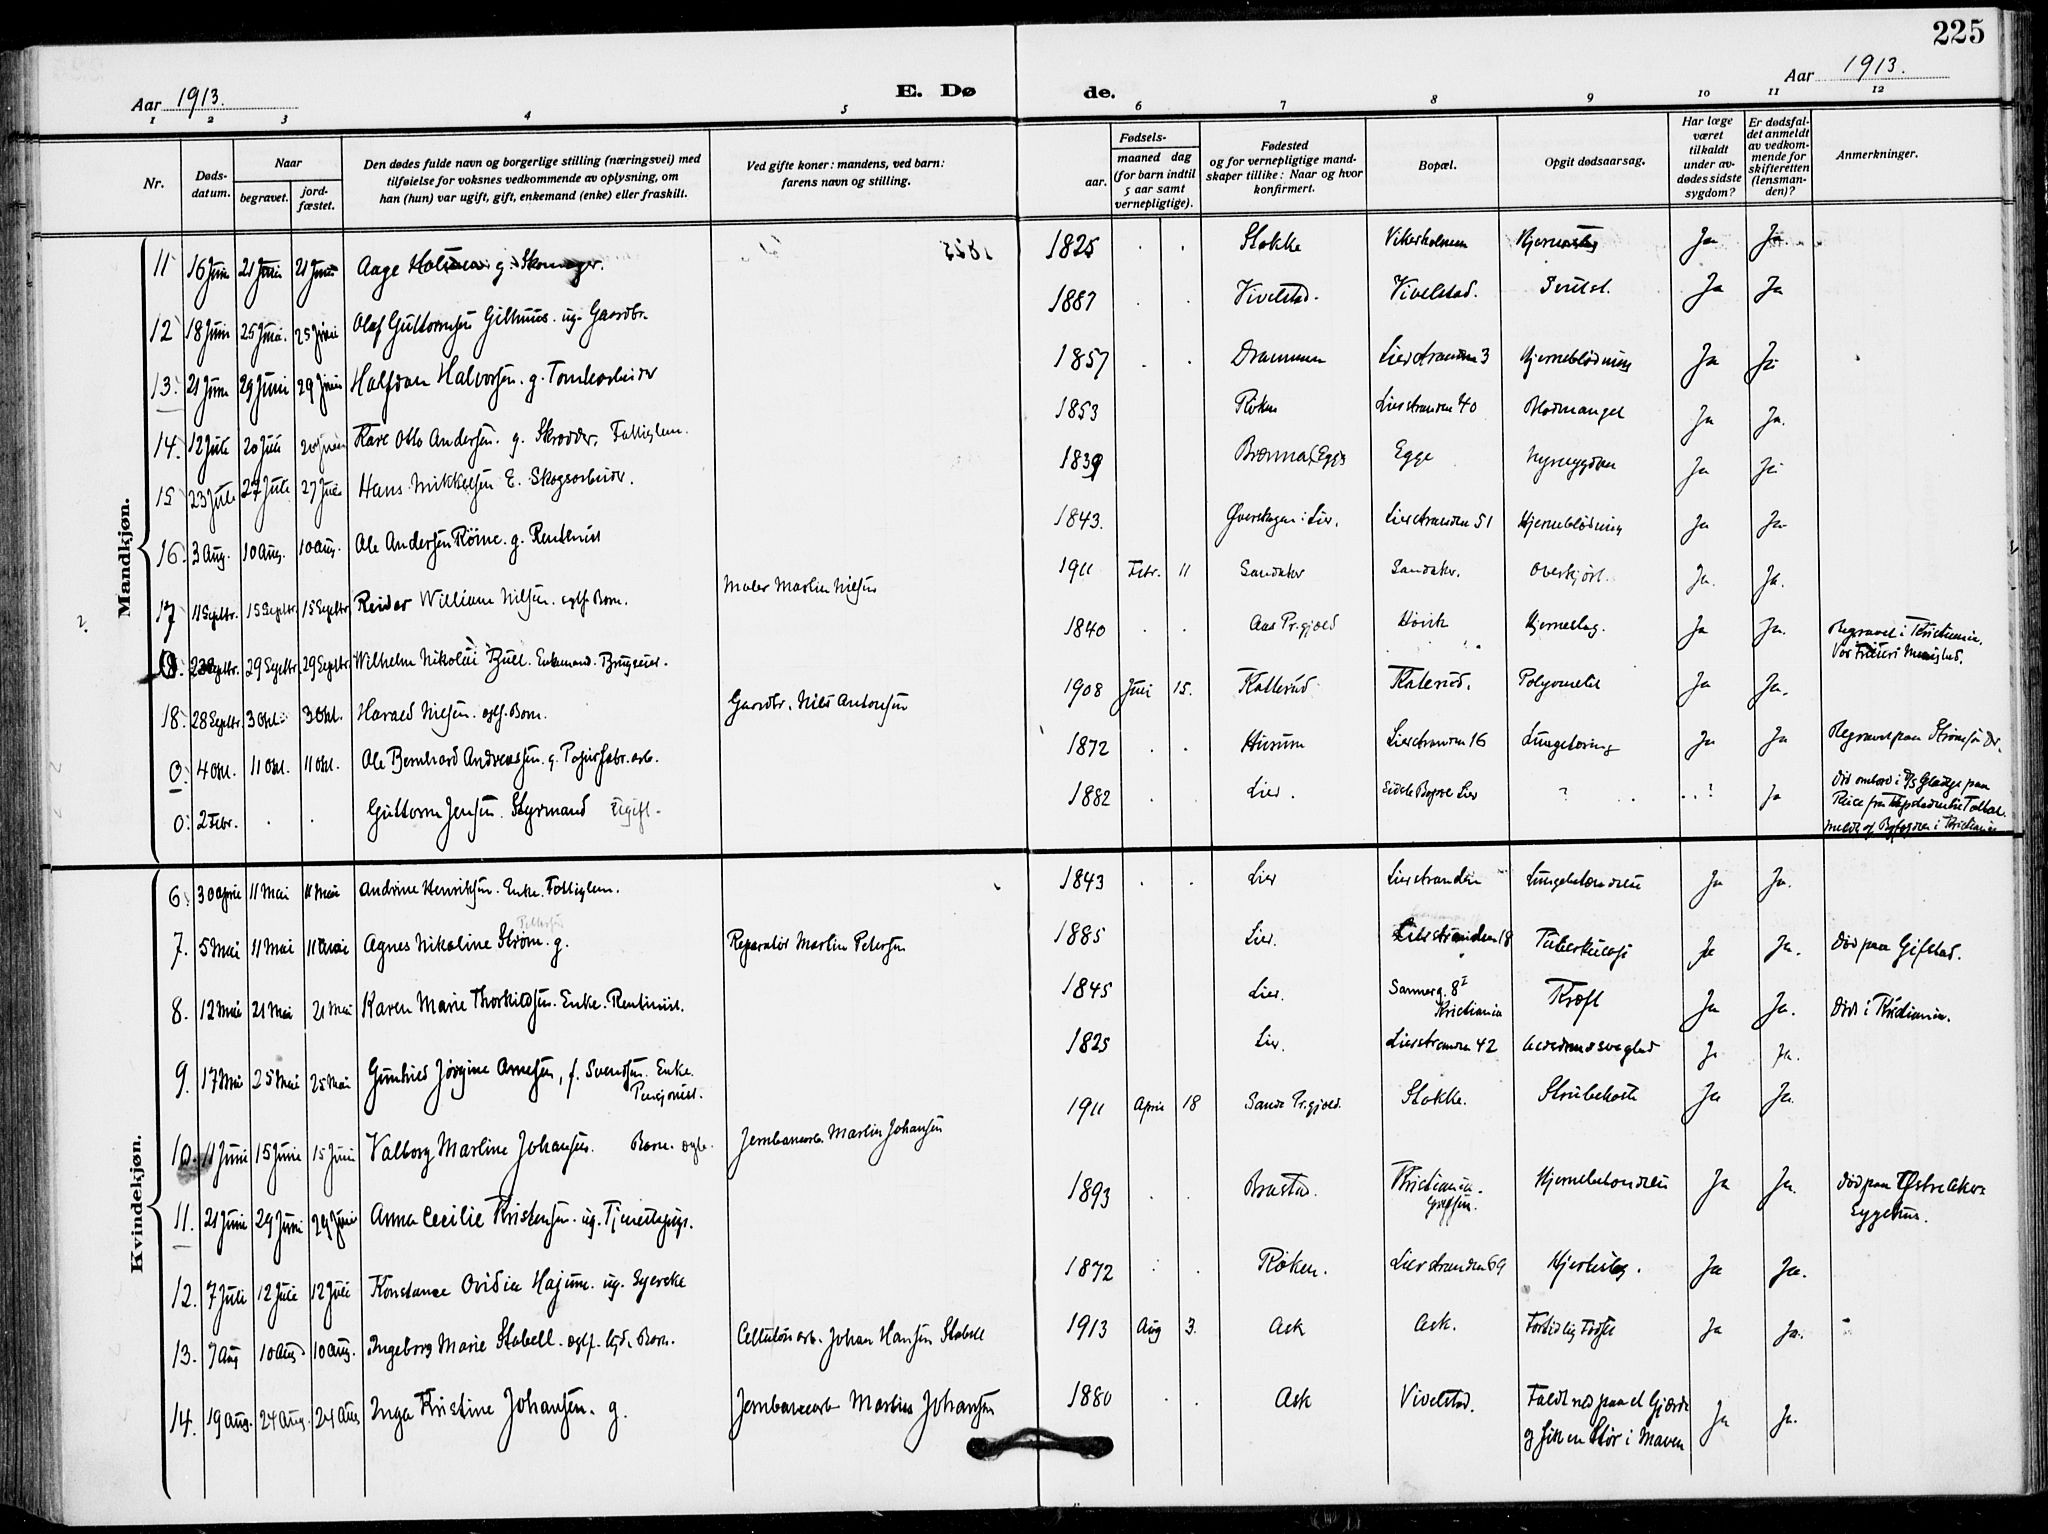 225
Aar 1913. E. Dø de. Aar 1913.
1 2 3 4 5 6 7 8 9 10 11 12
Nr.
Døds-
datum.
Naar
begravet.
jord-
fæstet.
Den dødes fulde navn og borgerlige stilling (næringsvei) med
tilføielse for voksnes vedkommende av oplysning, om
han (hun) var ugift, gift, enkemand (enke) eller fraskilt.
Ved gifte koner: mandens, ved barn:
farens navn og stilling.
Fødsels-
aar.
maaned dag
(for barn indtil
5 aar samt
vernepligtige).
Fødested
og for vernepligtige mand-
skaper tillike: Naar og hvor
konfirmert.
Bopæl.
Opgit dødsaarsag.
Har læge
været
tilkaldt
under av-
dødes sidste
sygdom?
Er dødsfal-
det anmeldt
av vedkom-
mende for
skifteretten
(lensman-
den)?
Anmerkninger.
Mandkjøn.
11 16 Juni 21 Juni 21 Juni Aage g. Skomager. 1825 Stokke Vikerholmen Ja Ja
12 18 Juni 25 Juni. 25 Juni Olaf Guttormsen Gilhuus. ug. Gaardbr. 1887 Vivelstad. Vivelstad. Ja Ja
13. 21 Juni 29 Juni 29 Juni Halfdan Halvorsen. g. Tomtearbeider 1857 Drammen Lierstranden 3 Hjerneblødning Ja Ja
14. 12 Juli 20 Juli 20 Juli Kare Otto Andersen. g. Skrædder. Fattiglem. 1853 Røken Lierstranden 40 Blodmangel Ja Ja.
15 23 Juli 27 Juli 27 Juli Hans Mikkelsen E. Skogsarbeider. 1839 Egge Nyresygdom Ja Ja
16. 3 Aug. 10 Aug. 10 Aug. Ole Andersen g. Rentenist 1843. Øverskogen i Lier. Lierstranden 51 Hjerneblødning Ja Ja
17 11 Septbr. 15 Septbr. 15 Septbr. Reidar William Nilsen. egtf Barn. Maler Martin Nilsen 1911 Febr. 11 Sandaker Sandaker. Overkjørt. Ja. Ja.
Septbr. 29 Septbr. 29 Septbr. Wilhelm Nikolai Bull. Enkemand. Brugseier. 1840 Aas Pr.gjeld Høvik Hjerneslag. Ja Ja. Begravet i Kristiania.
Vor Frelsers Menighed.
18. 28 Septbr. 3 Okt. 3 Okt. Harald Nilsen. egtf. Barn. Gaardbr. Nils Antonsen 1908 Juni 15. Katterud Katterud. Ja Ja.
0. 4 Okt. 11 Okt. 11 Okt. Ole Bernhard Andreassen. g. Papirfabr.arb. 1872 Hurum Lierstranden 16 Lungetæring Ja Ja Begravet paa Strømsø Dr.
0. 2 Febr. Guttorm Jensen. Styrmand Ugift. 1882 Lier. Sidste Bopæl Lier ? ? Ja Død ombord i
Reise fra
meldt af Byfogden i Kristiania
Kvindekjøn.
6. 30 April 11 Mai 11 Mai Andrine Henriksen. Enke. Fattiglem. 1843 Lier Lierstranden Lungebetændelse Ja Ja.
Pettersen
7. 5 Mai 11 Mai 11 Mai Agnes Nikoline Strøm. g. Reparatør Martin Petersen 1885 Lier. Lierstranden 18 Tuberkulose Ja Ja. Død paa Gifstad.
8. 12 Mai 21 Mai 21 Mai Karen Marie Thorkildsen. Enke. Rentenist. 1845 Lier. Sannerg. 8 I
Kristiania Kræft Ja Ja. Død i Kristiania.
9. 17 Mai 25 Mai 25 Mai Gunhild Jørgine Arnesen, f. Svendsen. Enke.
Pensjonist. 1825 Lier. Lierstranden 42 Alderdomssvaghed Ja Ja.
10. 11 Juni 15 Juni 15 Juni Valborg Marline Johansen. Barn. egtf. Jernbanearb. Martin Johansen 1911 April 18 Sande Pr.gjeld. Stokke. Strubehoste Ja Ja.
11. 21 Juni 29 Juni 29 Juni Anna Cecilie Kristensen. ug. Tjenestepige. 1893 Brastad. Kristiania.
Grefsen. Hjernebetændelse Ja Ja. Død paa Østre Akers
Sygehus.
12. 7 Juli 12 Juli 12 Juli Konstance Ovidia ug. Syerske 1872 Røken. Lierstranden 69 Hjerteslag. Ja Ja.
13. 7 Aug 10 Aug 10 Aug. Ingeborg Marie Stabell. egtf. Barn. Cellulosearb. Johan Hansen Stabell 1913 Aug 3. Ask Ask. Fortidlig Fødsel Ja Ja.
14. 19 Aug. 24 Aug. 24 Aug Inga Kristine Johansen. g. Jernbanearb Martin Johansen 1880 Ask Vivelstad. Faldt ned paa et Gjærde
og fik en Stør i Maven Ja Ja.